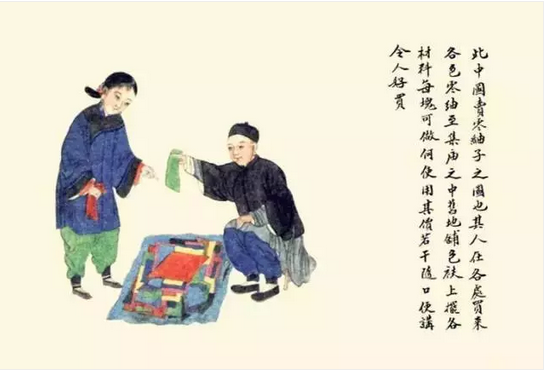 此中國賣零紬子之圖也其人在各處買来
各色零紬至集庙之中舀地鋪色袱上擺各
材料每塊可做何使用其價若干隨口便講
令人好買